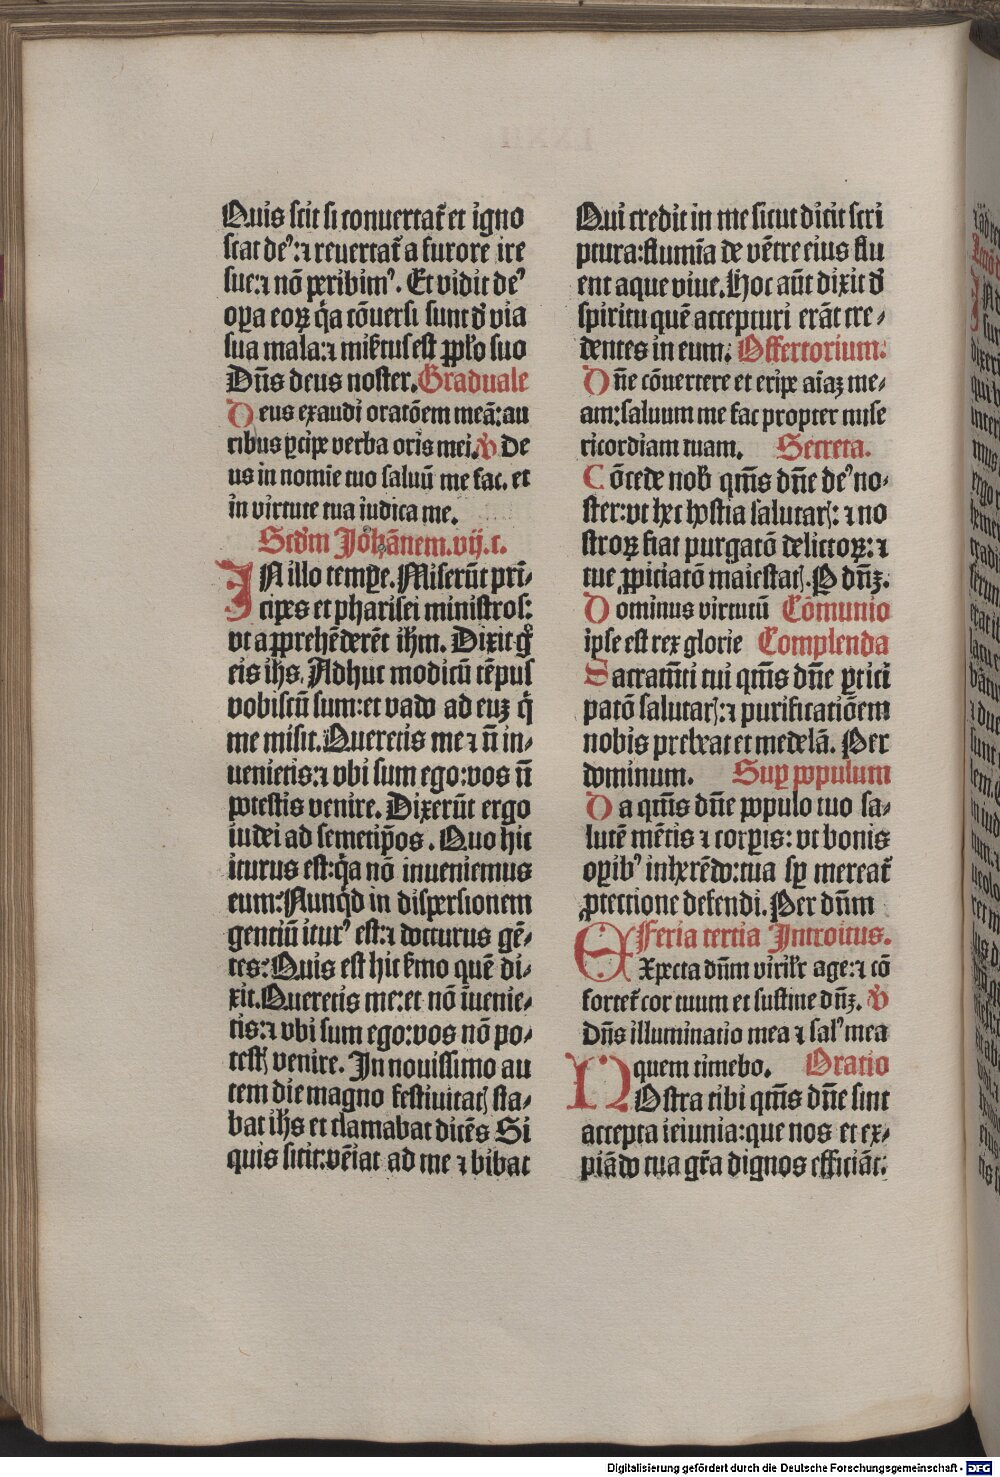 Quis scit si conuertat᷑ et igno
scat de⁹:⁊ reuertat᷑ a furore ire
sue:⁊ nō peribim⁹. Et vidit de⁹
opa eoꝝ q̄a cōuersi sunt d̄ via
sua mala:⁊ mis̄tus est pp̄lo suo
Dn̄s deus noster. Graduale
Deus exaudi oratōem meā: au
ribus ꝑcipe verba oris mei. ꝟ De
us in nomie tuo saluū me fac. et
in virtute tua iudica me.
Scd̄m Johānem. vij. c.
IN illo tempe. Miserūt prī-
cipes et pharisei ministros:
vt apprehēderēt ih̄m. Dixit g̊
eis ih̄s. Adhuc modicū tēpus
vobiscū sum: et vado ad euꝫ q̄
me misit. Queretis me ⁊ n̄ in-
uenietis:⁊ vbi sum ego: vos n̄
potestis venire. Dixerūt ergo
iudei ad semetip̄os. Quo hic
iturus est: q̄a nō inueniemus
eum? Nunq̄d in dispersionem
gentiū itur⁹ est:⁊ docturus gē-
tes? Quis est hic s̄mo quē di-
xit. Queretis me: et nō īuenie-
tis:⁊ vbi sum ego: vos nō po-
testꝭ venire. In nouissimo au
tem die magno festiuitatꝭ sta-
bat ih̄s et clamabat dicēs Si
quis sitit: vēiat ad me ⁊ bibat
Qui credit in me sicut dicit scri
ptura: flumīa de vētre eius flu
ent aque viue. Hoc aūt dixit d̄
spiritu quē accepturi erāt cre-
dentes in eum. Offertorium.
Dn̄e cōuertere et eripe aīaꝫ me-
am: saluum me fac propter mise
ricordiam tuam. Secreta.
Cōcede nob̄ qm̄s dn̄e de⁹ no-
ster: vt hec hostia salutarꝭ: ⁊ no
stroꝝ fiat purgatō delictoꝝ: ⁊
tue ꝓpiciatō maiestatꝭ. P dn̄ꝫ.
Dominus virtutū Cōmunio
ipse est rex glorie Complenda
Sacramn̄ti tui qm̄s dn̄e ꝑticī
patō salutarꝭ: ⁊ purificatiōem
nobis prebeat et medelā. Per
dominum. Sup populum
Da qm̄s dn̄e populo tuo sa-
lutē mētis ⁊ corpis: vt bonis
opib⁹ inherēdo: tua sp̄ mereat᷑
ꝓtectione defendi. Per dn̄m
Feria tertia Introitus.
EXpecta dn̄m virilr̄ age: ⁊ cō
fortet᷑ cor tuum et sustine dn̄ꝫ. ꝟ
Dn̄s illuminatio mea ⁊ sal⁹ mea
quem timebo. Oratio
NOstra tibi qm̄s dn̄e sint
accepta ieiunia: que nos et ex-
piādo tua gr̄a dignos efficiāt:
Digitalisierung gefördert durch die Deutsche Forschungsgemeinschaft - DFG